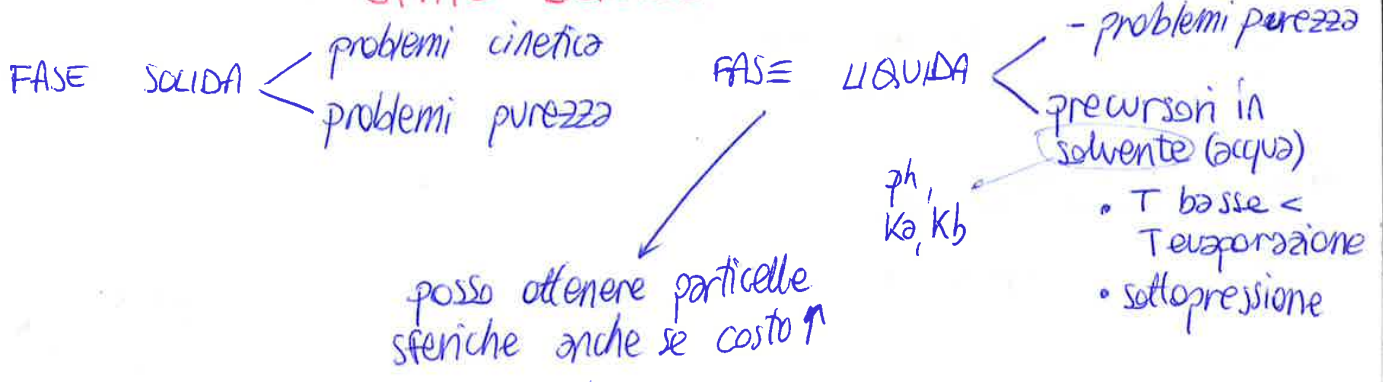 FASE SOLIDA
problemi cinetica
problemi purezza
FASE LIQUIDA
- problemi purezza
precursori in
solvente (acqua)
• T basse <
T evaporazione
• sottopressione
ph,
Ka, Kb
posso ottenere particelle
sferiche anche se costo ↑